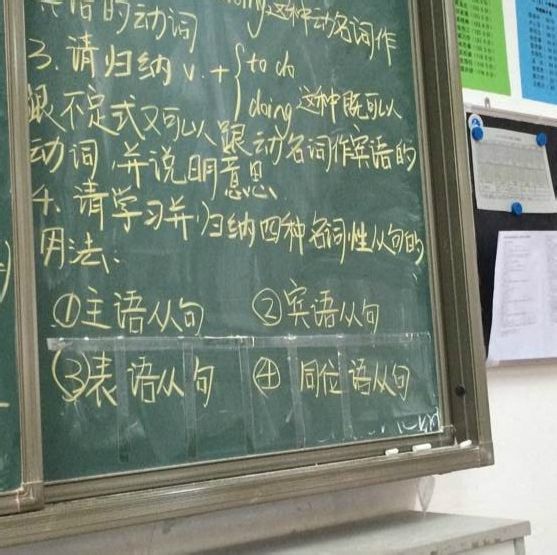 宾语的动词 doing这种动名词作
3.请归纳v.+{to do
doing 这种既可以
跟不定式又可以跟动名词作宾语的
动词,并说明意思
4.请学习并归纳四种名词性从句的
用法:
①主语从句 ②宾语从句
③表语从句 ④同位语从句